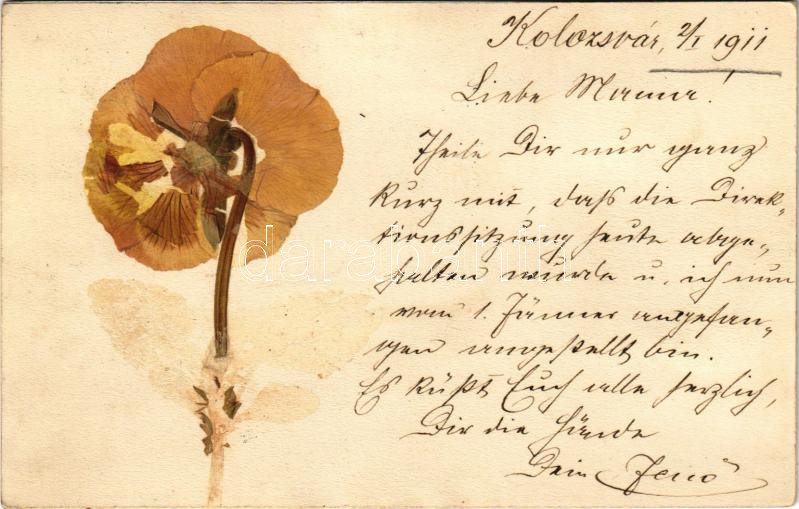 Kolozsvár, 2/I 1911
Liebe Mama!
Theile Dir nur ganz
kurz mit, daß die Direk-
tionssitzung heute abge-
halten wurde u. ich nun
vom 1. Jänner angefan-
gen angestellt bin.
Es küßt Euch alle herzlich,
Dir die Hände
Dein Jenő
darabanth